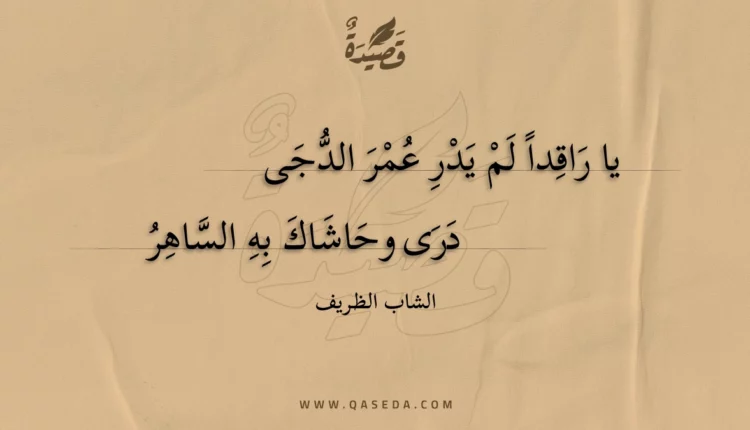 قَصِيدَةٌ
يا رَاقِداً لَمْ يَدْرِ عُمْرَ الدُّجَى
دَرَى وحَاشَاكَ بِهِ السَّاهِرُ
الشاب الظريف
WWW.QASEDA.COM